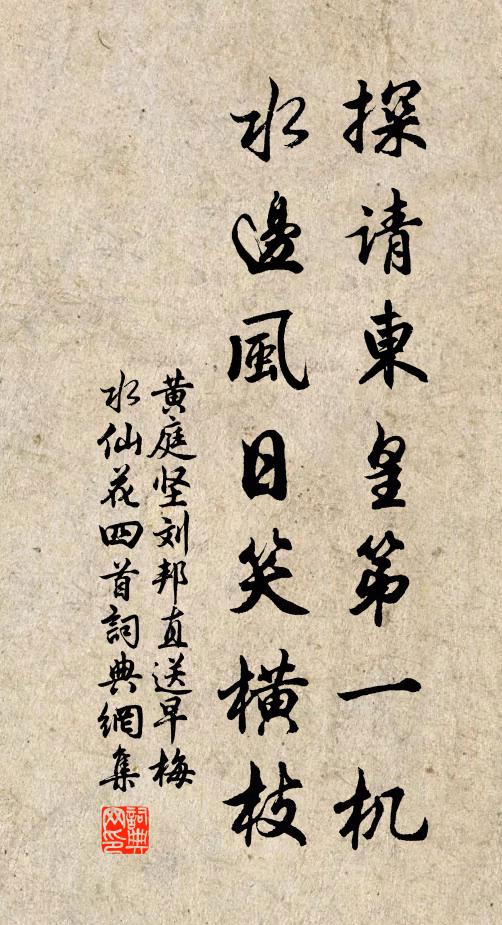 探请東皇第一机
水邊風日笑横枝
黄庭坚刘邦直送早梅
水仙花四首詞典網集
詞典
网印